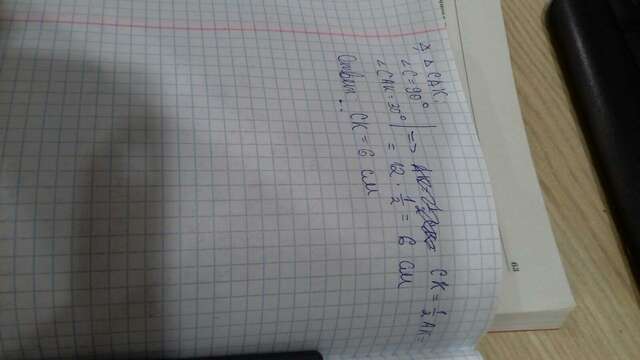 3) △ CAK:
∠C = 90° | => CK = 1/2 AK =
∠CAK = 30° | = 12 · 1/2 = 6 см
Ответ: CK = 6 см
63